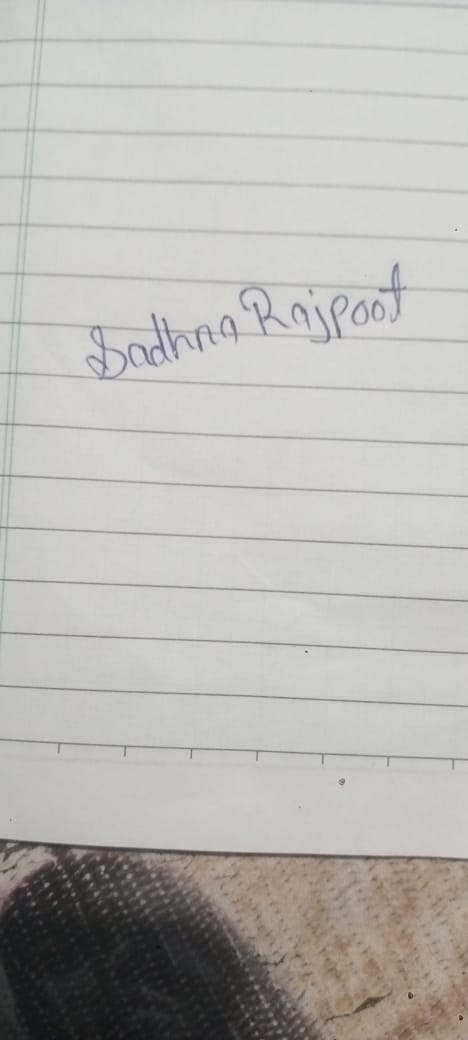 Sadhna Rajpoot